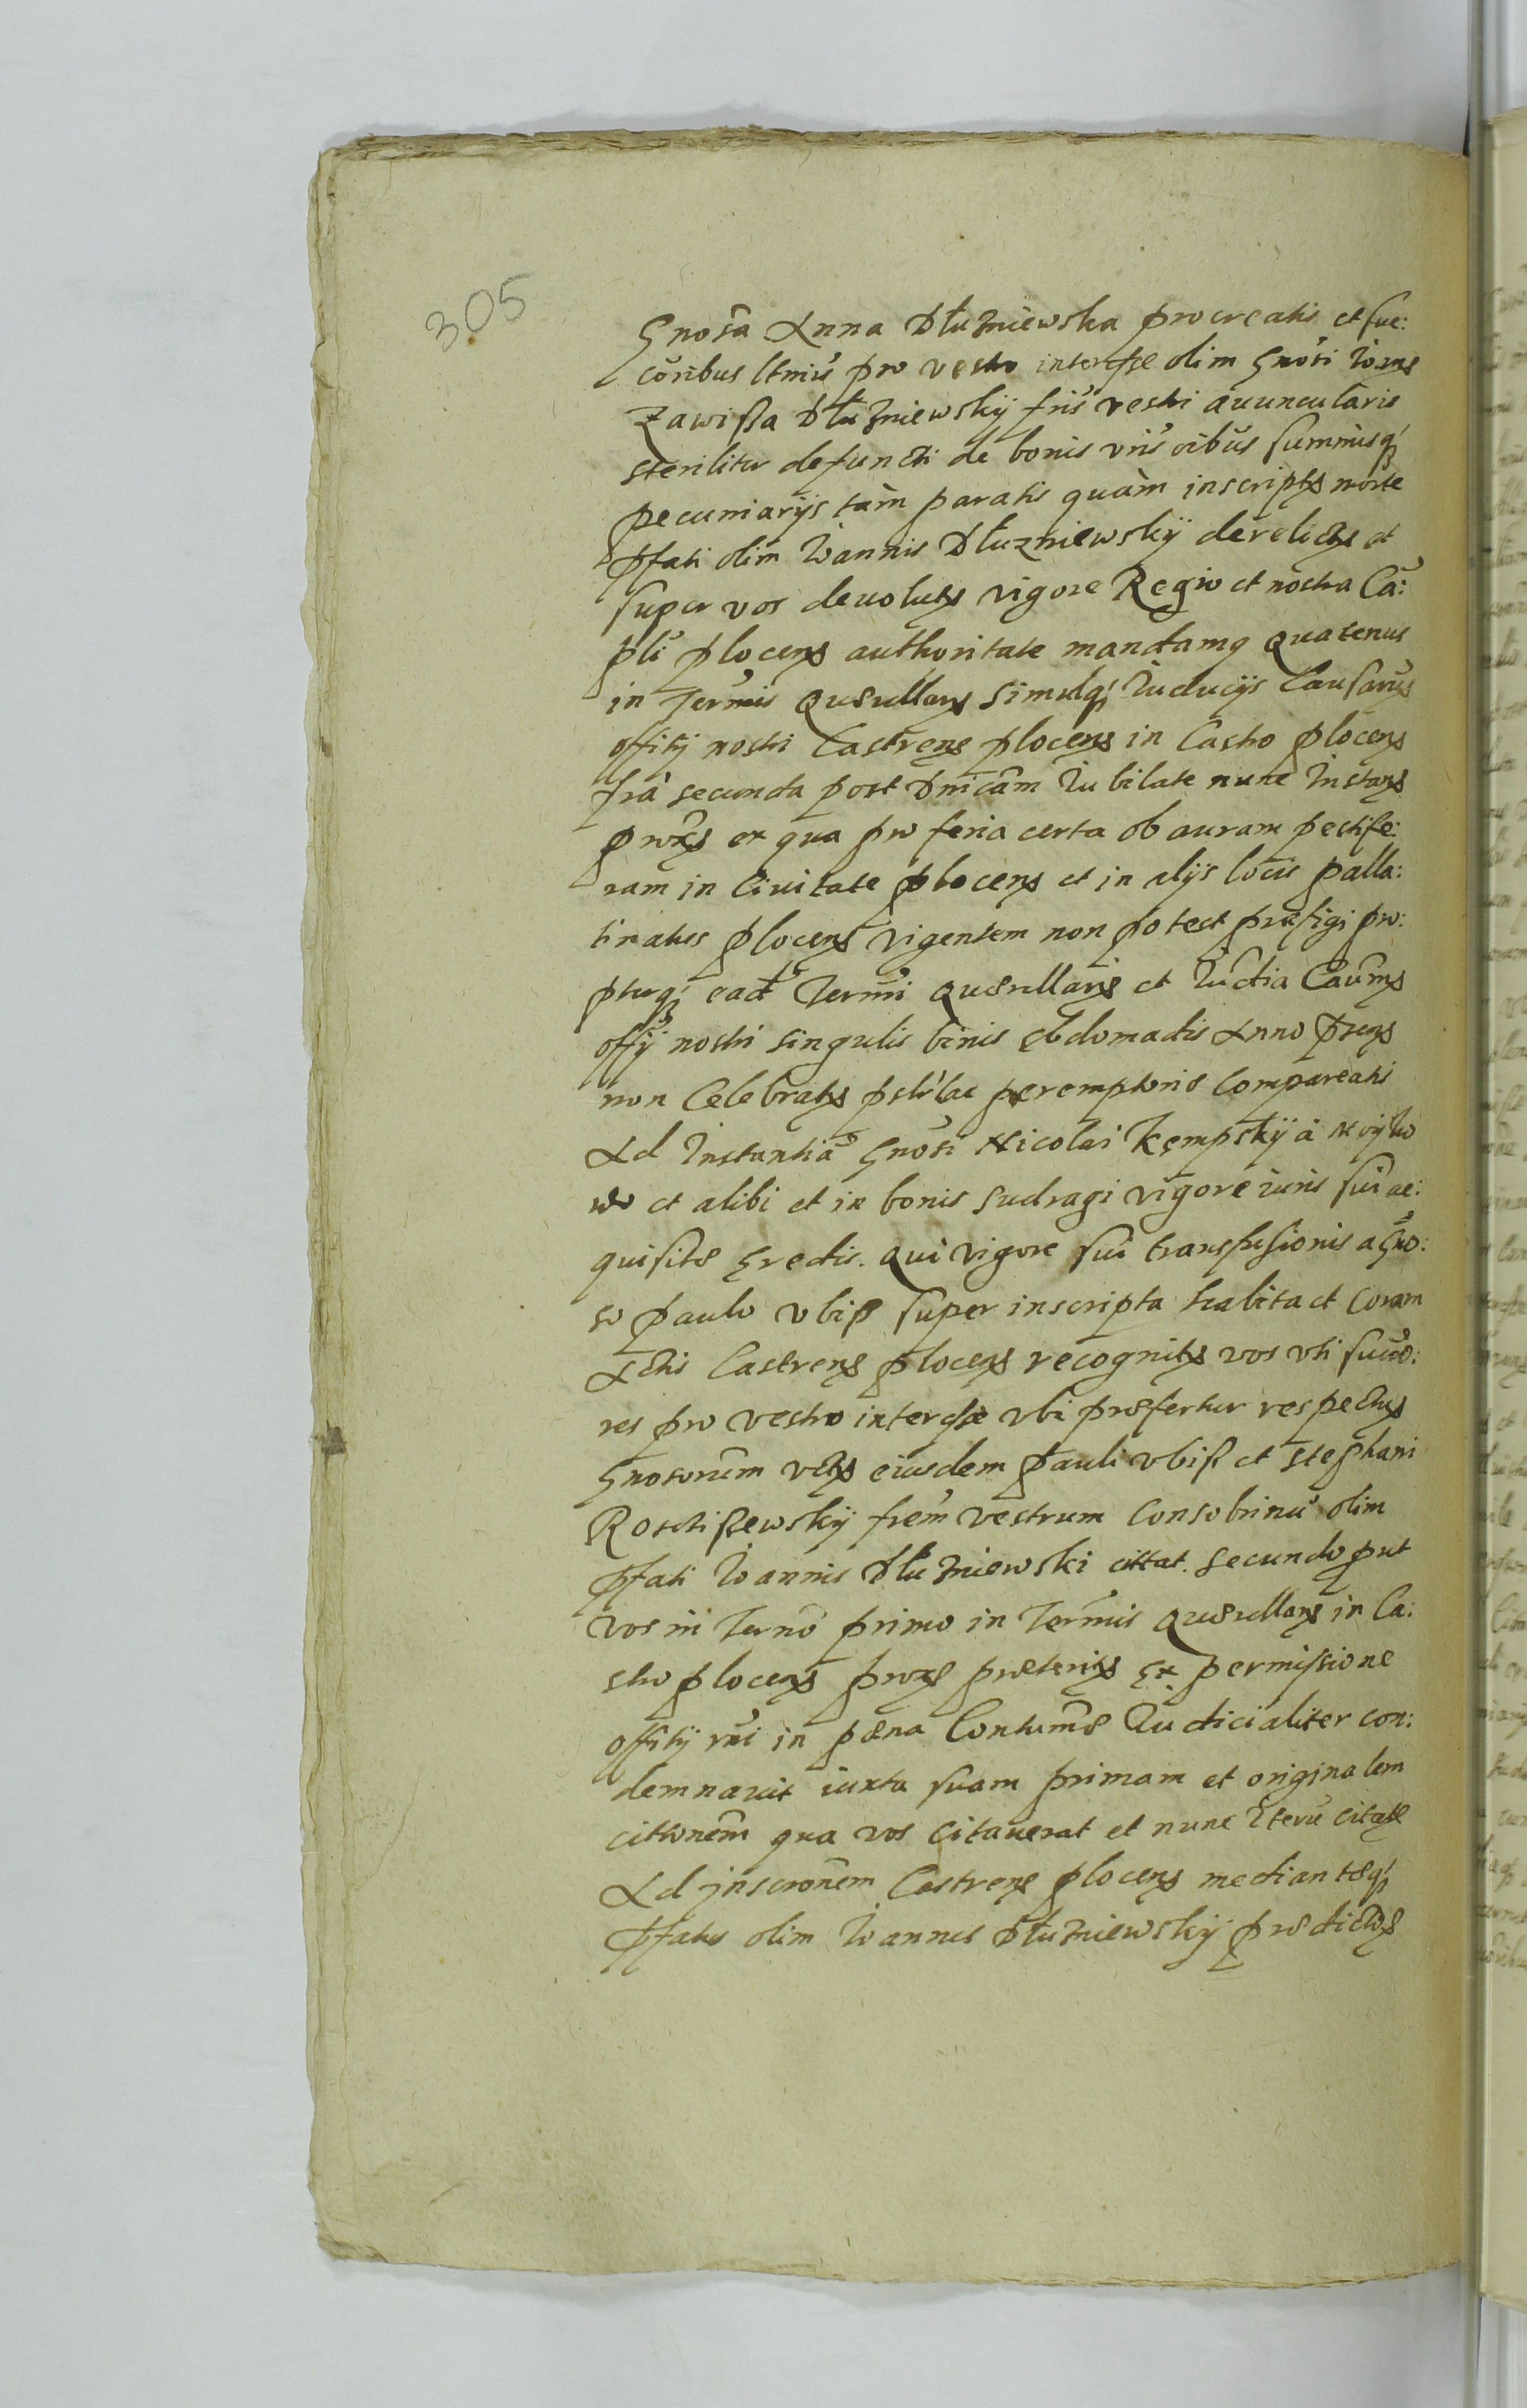 305
Gnosa Anna Dłuzniewska procreatis et suc:
coribus ltmis pro vestro interesse olim Gnosi Ioans
Zawissa Dłuzniewskij fris vestri auuncularis
steriliter defuncti de bonis vris oibus summisq
pecuniarijs tam paratis quàm inscriptis morte
pfati olim Ioannis Dłuzniewskij derelictis et
super vos deuolutis vigore Regio et nostra Ca:
pli plocens authoritate mandamq quatenus
in Termis querullaris simulq Iudicijs Causarus
offitij nostri Castrens plocens in Castro plocens
fria secunda post Dnicam Iubilate nunc Instans
prox ex qua pro feria certa ob auram pestife:
ram in Ciuitate plocens et in alijs locis palla:
tinatus plocens vigentem non potest præfigi pro:
pterq ead Termi querullaris et Iudia Causms
offij nostri singulis binis ebdomadis Anno prens
non Celebratis pstrlae peremptorie Compareatis
Ad Instantia Gnosi Nicolai Kempskij à
wo et alibi et in bonis Sudragi vigore iuris sui ac:
quisito Eredis. Qui vigore sui transfusionis a Gno:
so paulo vbiss super inscripta habita et Coram
Actis Castrens plocens recognitis vos vti succo:
res pro vestro interesse vbi præfertur respectus
Gnosorum eiusdem pauli vbiss et Stephani
Rosctissewskij frem vestrum Consobrinu olim
pfati Ioannis Dłuzniewski cittat. Secundo put
vos in Terno primo in Termis querullaris in Ca:
stro plocens prox præteritis Ex permissione
offitij nri in pæna Contumæ Iudicialiter con:
demnauit iuxta suam primam et originalem
cittonem qua vos Citauerat et nunc Iteru citat
Ad jnscronem Castrens plocens mediantæq
pfatus olim Ioannes Dłuzniewskij prædictos